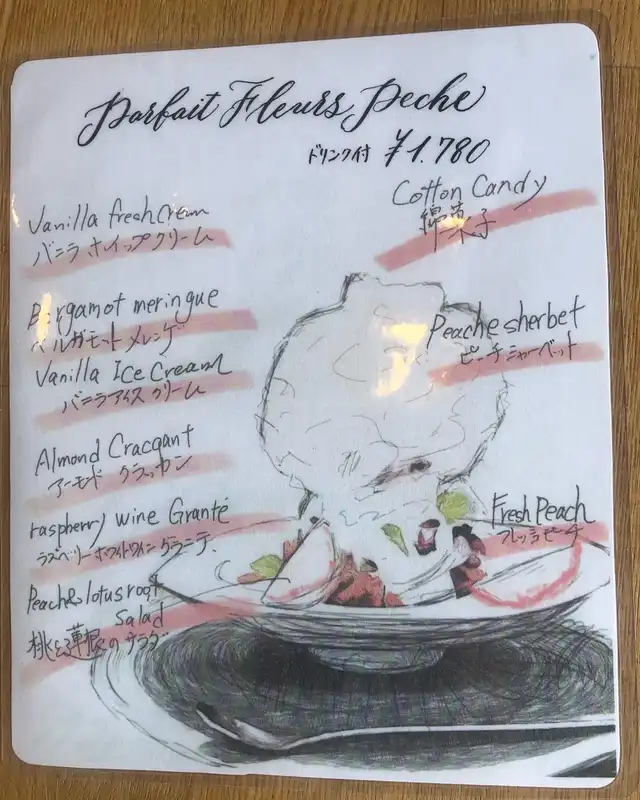 Parfait Fleurs Peche
ドリンク付 ¥1.780
Cotton Candy
綿菓子
Vanilla fresh Cream
バニラ ホイップクリーム
Bergamot meringue
ベルガモット メレンゲ
Peache sherbet
ピーチシャーベット
Vanilla Ice Cream
バニラアイス クリーム
Almond Cracqant
アーモンド クラッカン
raspberry wine Granté
ラズベリーホワイトワイングラニテ.
Fresh Peach
フレッシュピーチ
Peach & lotus root
Salad
桃と蓮根のサラダ